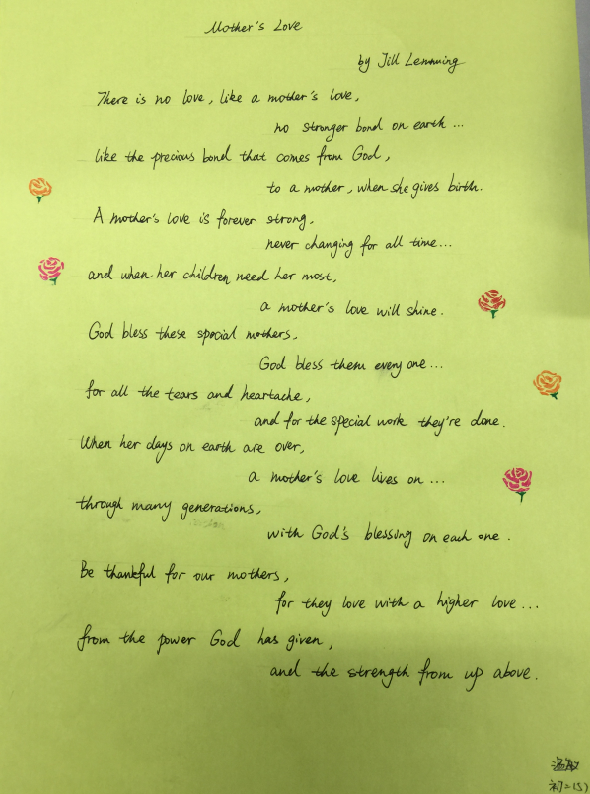 Mother's Love
by Jill Lemming
There is no love, like a mother's love,
no stronger bond on earth ...
like the precious bond that comes from God,
to a mother, when she gives birth.
A mother's love is forever strong,
never changing for all time...
and when her children need her most,
a mother's love will shine.
God bless these special mothers,
God bless them every one...
for all the tears and heartache,
and for the special work they're done.
When her days on earth are over,
a mother's love lives on ...
through many generations,
with God's blessing on each one.
Be thankful for our mothers,
for they love with a higher love...
from the power God has given,
and the strength from up above.
初二(5)